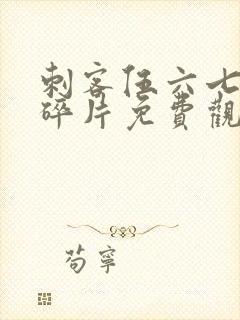 刺客伍六七
碎片免費觀
苟寧